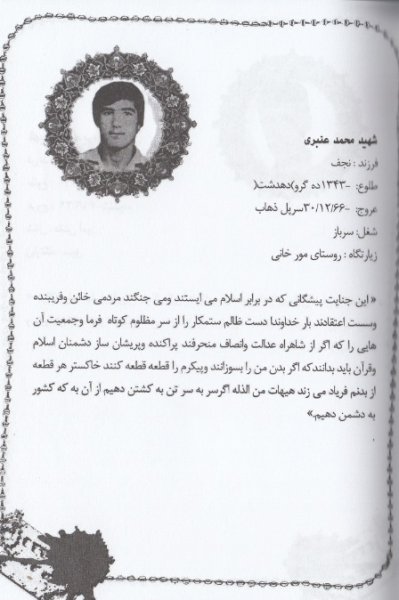 شهید محمد عنبری
فرزند : نجف
طلوع: -۱۳۴۳ده گرو)دهدشت(
عروج: -۳۰/۱۲/۶۶سرپل ذهاب
شغل: سرباز
زیارتگاه : روستای مور خانی
« این جنایت پیشگانی که در برابر اسلام می ایستند ومی جنگند مردمی خائن وفریبنده
وسست اعتقادند بار خداوندا دست ظالم ستمکار را از سر مظلوم کوتاه فرما وجمعیت آن
هایی را که اگر از شاهراه عدالت وانصاف منحرفند پراکنده وپریشان ساز دشمنان اسلام
وقرآن باید بدانندکه اگر بدن من را بسوزانند وپیکرم را قطعه قطعه کنند خاکستر هر قطعه
از بدنم فریاد می زند هیهات من الذله اگرسر به سر تن به کشتن دهیم از آن به که کشور
به دشمن دهیم.»